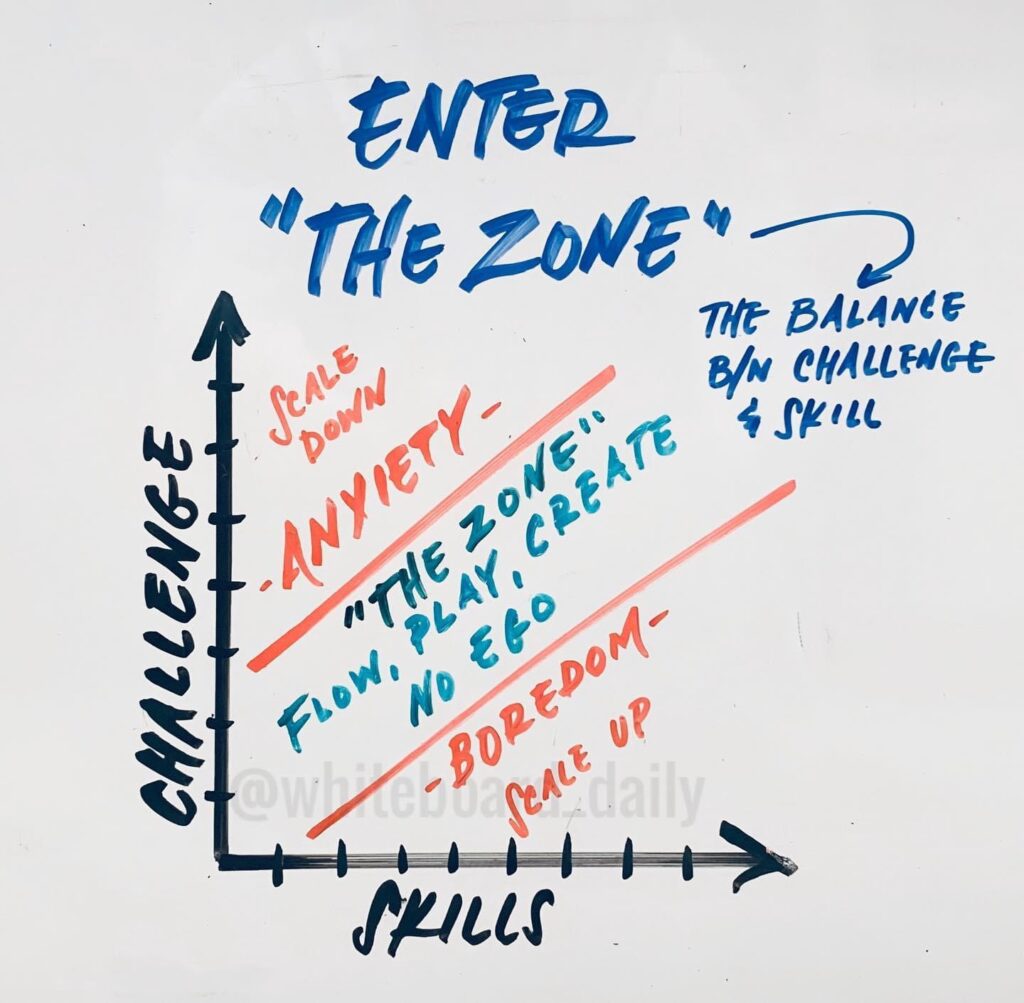 ENTER
"THE ZONE"
THE BALANCE
B/N CHALLENGE
& SKILL
SCALE
DOWN
-ANXIETY-
"THE ZONE"
FLOW, PLAY, CREATE
NO EGO
-BOREDOM-
SCALE UP
CHALLENGE
SKILLS
@whiteboard_daily